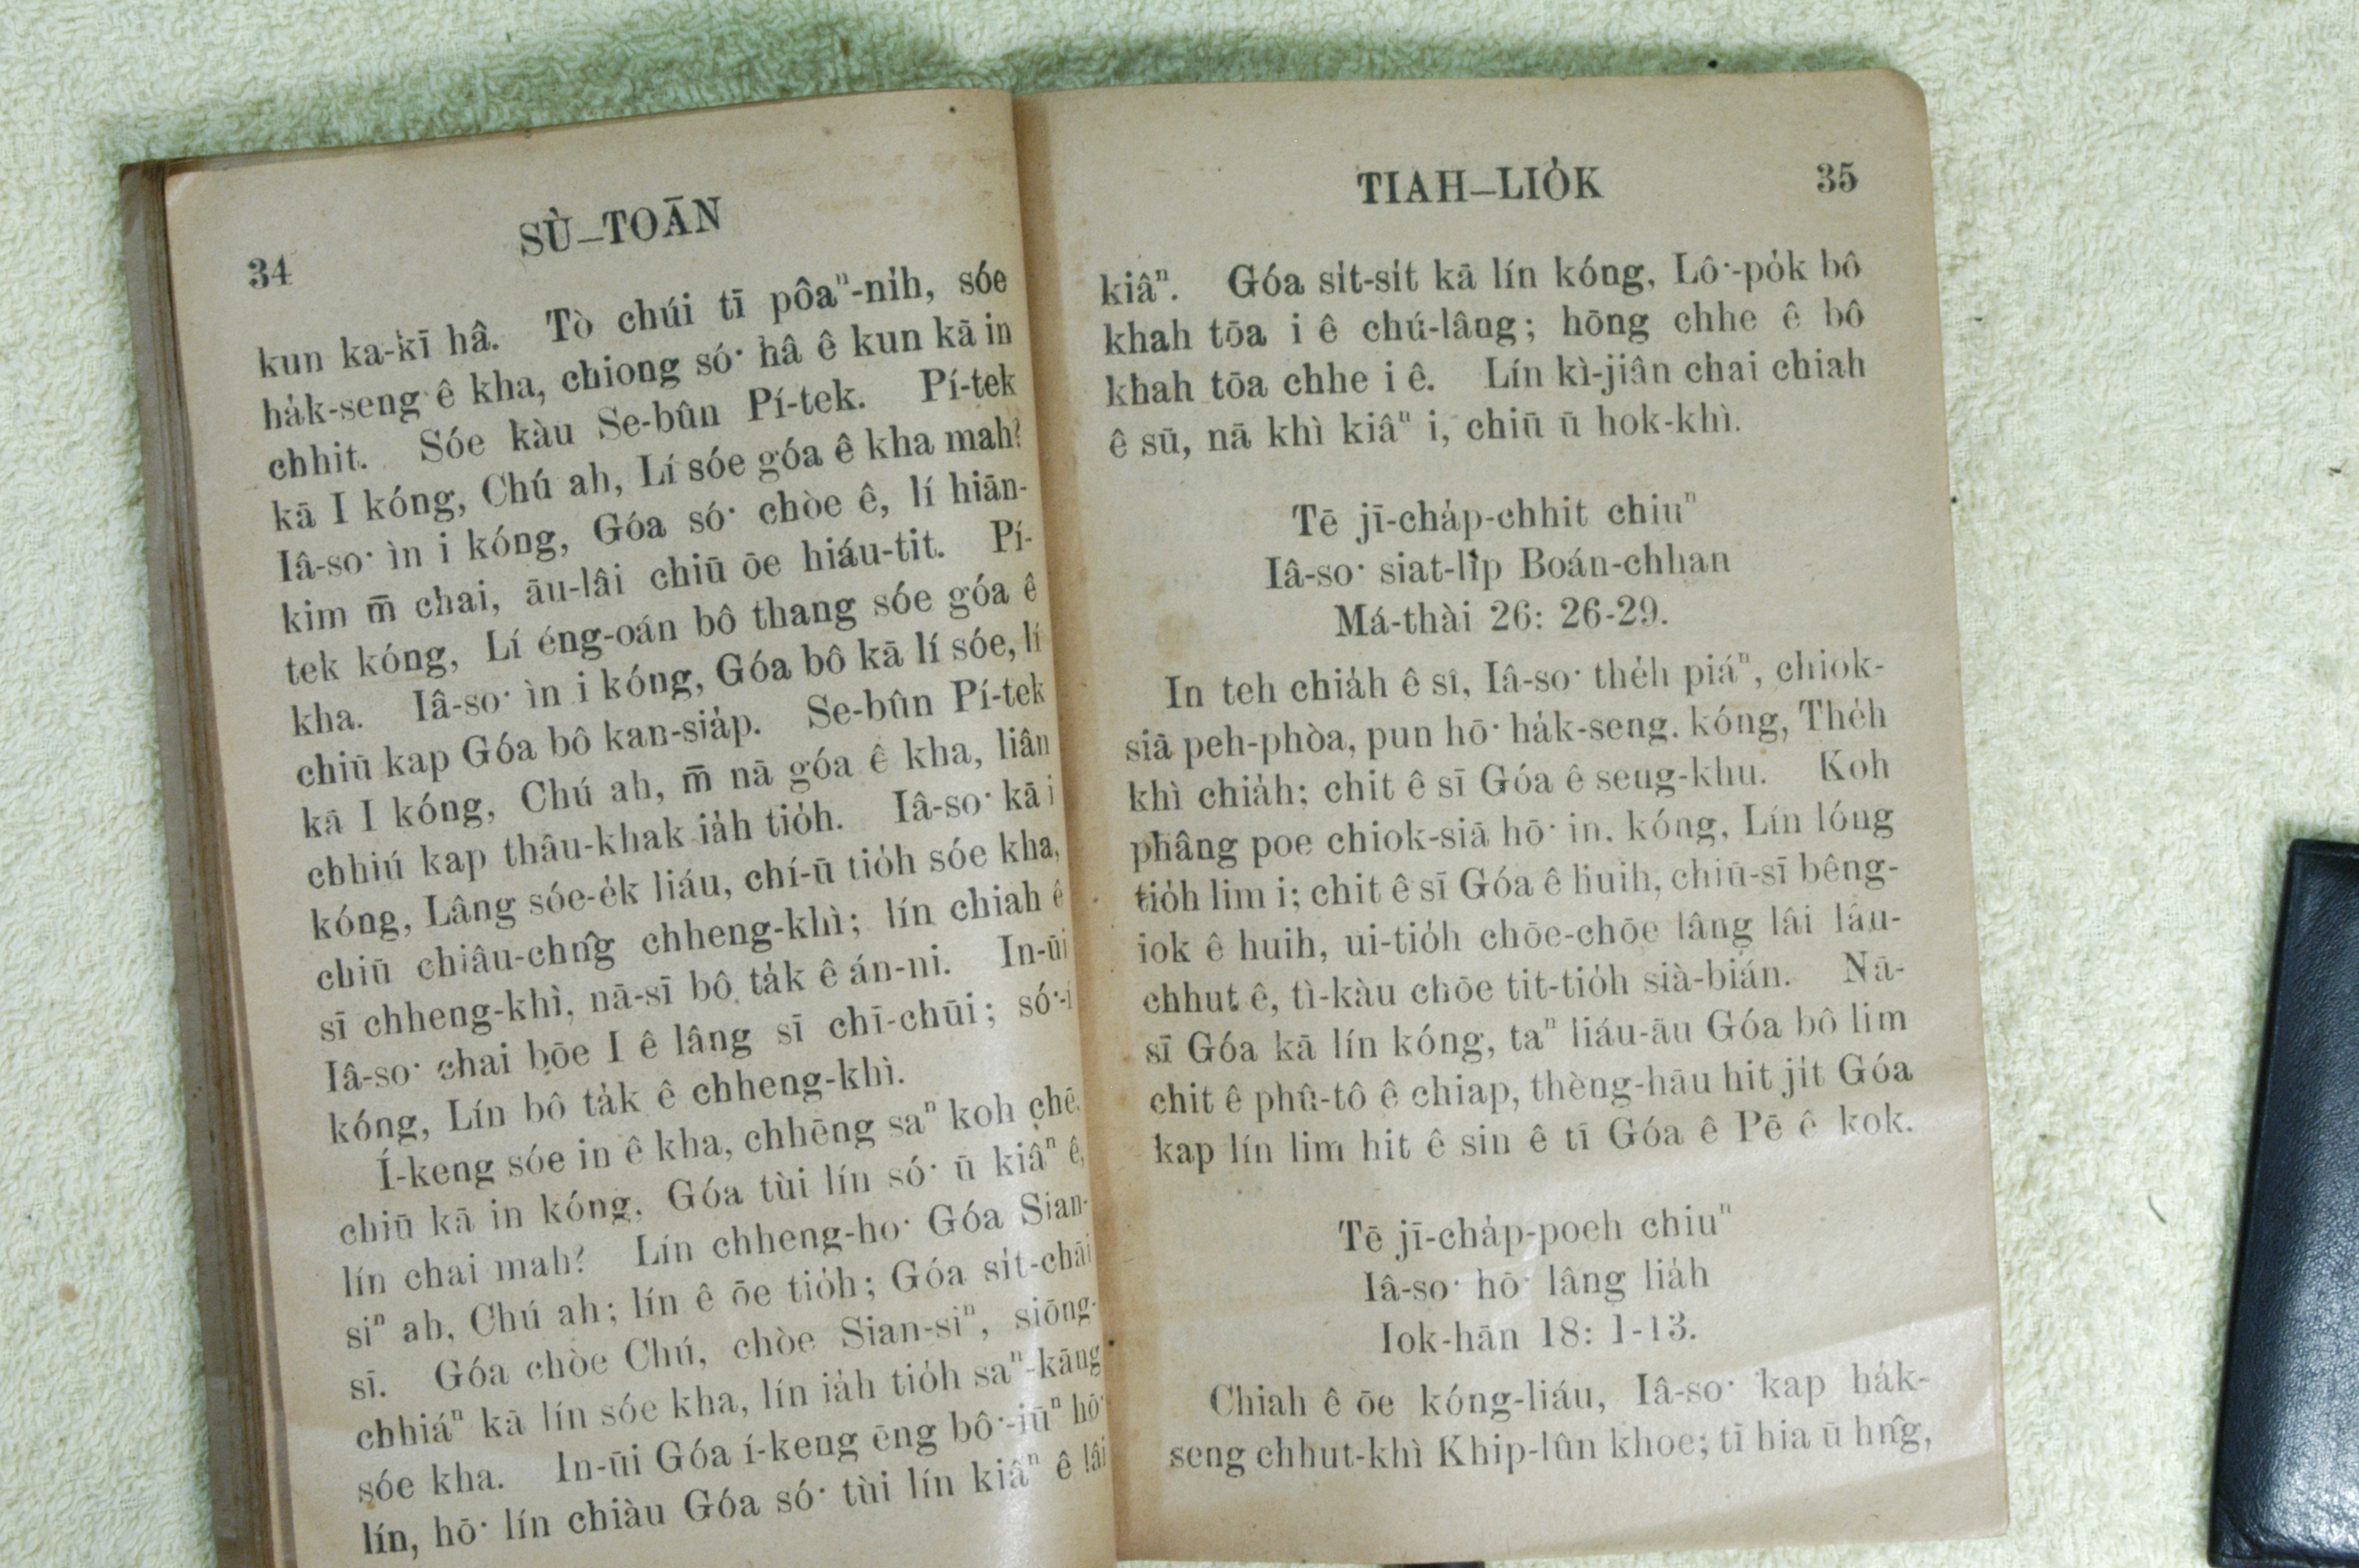 34 SÙ–TOĀN
kun ka-kī hâ. Tò chúi tī pôaⁿ-ni̍h, sóe
ha̍k-seng ê kha, chiong só͘ hâ ê kun kā in
chhit. Sóe kàu Se-bûn Pí-tek. Pí-tek
kā I kóng, Chú ah, Lí sóe góa ê kha mah?
Iâ-so͘ ìn i kóng, Góa só͘ chòe ê, lí hiān-
kim m̄ chai, āu-lâi chiū ōe hiáu-tit. Pí-
tek kóng, Lí éng-oán bô thang sóe góa ê
kha. Iâ-so͘ ìn i kóng, Góa bô kā lí sóe, lí
chiū kap Góa bô kan-sia̍p. Se-bûn Pí-tek
kā I kóng, Chú ah, m̄ nā góa ê kha, liân
chhiú kap thâu-khak ia̍h tio̍h. Iâ-so͘ kā i
kóng, Lâng sóe-e̍k liáu, chí-ū tio̍h sóe kha,
chiū chiâu-chn̂g chheng-khì; lín chiah ê
sī chheng-khì, nā-sī bô ta̍k ê án-ni. In-ūi
Iâ-so͘ chai bōe I ê lâng sī chī-chūi; só͘-í
kóng, Lín bô ta̍k ê chheng-khì.
Í-keng sóe in ê kha, chhēng saⁿ koh chē,
chiū kā in kóng, Góa tùi lín só͘ ū kiâⁿ ê,
lín chai mah? Lín chheng-ho͘ Góa Sian-
siⁿ ah, Chú ah; lín ê ōe tio̍h; Góa si̍t-chāi
sī. Góa chòe Chú, chòe Sian-siⁿ, siōng-
chhiáⁿ kā lín sóe kha, lín ia̍h tio̍h saⁿ-kāng
sóe kha. In-ūi Góa í-keng ēng bô͘-iūⁿ hō͘
lín, hō͘ lín chiàu Góa só͘ tùi lín kiâⁿ ê lâi
TIAH–LIO̍K 35
kiâⁿ. Góa si̍t-si̍t kā lín kóng, Lô͘-po̍k bô
khah tōa i ê chú-lâng; hōng chhe ê bô
khah tōa chhe i ê. Lín kì-jiân chai chiah
ê sū, nā khì kiâⁿ i, chiū ū hok-khì.
Tē jī-cha̍p-chhit chiuⁿ
Iâ-so͘ siat-li̍p Boán-chhan
Má-thài 26: 26-29.
In teh chia̍h ê sî, Iâ-so͘ the̍h piáⁿ, chiok-
siā peh-phòa, pun hō͘ ha̍k-seng. kóng, The̍h
khì chia̍h; chit ê sī Góa ê seng-khu. Koh
phâng poe chiok-siā hō͘ in. kóng, Lín lóng
tio̍h lim i; chit ê sī Góa ê huih, chiū-sī bêng-
iok ê huih, ūi-tio̍h chōe-chōe lâng lâi lâu-
chhut ê, tì-kàu chōe tit-tio̍h sià-bián. Nā-
sī Góa kā lín kóng, taⁿ liáu-āu Góa bô lim
chit ê phû-tô ê chiap, thèng-hāu hit ji̍t Góa
kap lín lim hit ê sin ê tī Góa ê Pē ê kok.
Tē jī-cha̍p-poeh chiuⁿ
Iâ-so͘ hō͘ lâng lia̍h
Iok-hān 18: 1-13.
Chiah ê ōe kóng-liáu, Iâ-so͘ kap ha̍k-
seng chhut-khì Khip-lûn khoe; tī hia ū hn̂g,